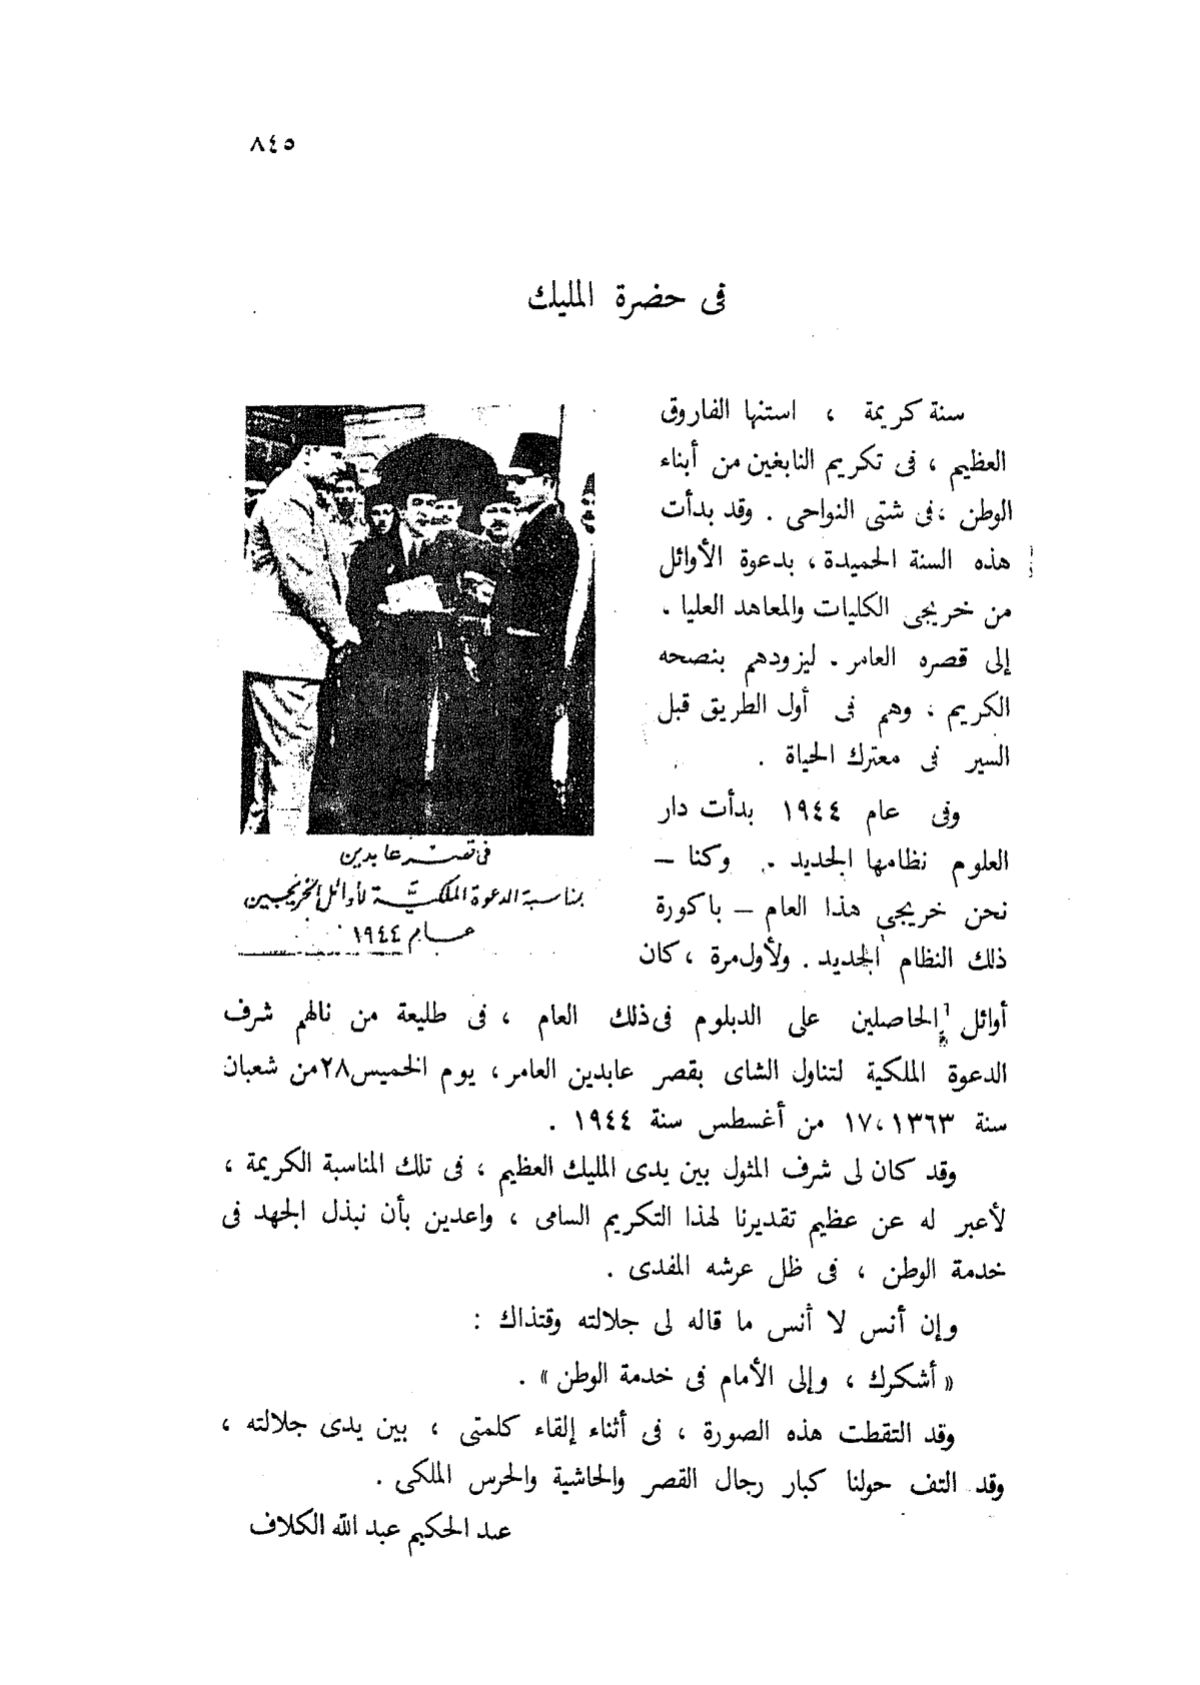 ٨٤٥
فى حضرة المليك
سنة كريمة ، استنها الفاروق
العظيم ، فى تكريم النابغين من أبناء
الوطن ، فى شتى النواحى . وقد بدأت
هذه السنة الحميدة ، بدعوة الأوائل
من خريجى الكليات والمعاهد العليا .
إلى قصره العامر . ليزودهم بنصحه
الكريم ، وهم فى أول الطريق قبل
السير فى معترك الحياة .
وفى عام ١٩٤٤ بدأت دار
العلوم نظامها الجديد . وكنا —
نحن خريجى هذا العام — باكورة
ذلك النظام الجديد . ولأول مرة ، كان
فى قصر عابدين
بمناسبة الدعوة الملكية لأوائل الخريجين
عام ١٩٤٤
أوائل الحاصلين على الدبلوم فى ذلك العام ، فى طليعة من نالهم شرف
الدعوة الملكية لتناول الشاى بقصر عابدين العامر ، يوم الخميس ٢٨ من شعبان
سنة ١٣٦٣ ، ١٧ من أغسطس سنة ١٩٤٤ .
وقد كان لى شرف المثول بين يدى المليك العظيم ، فى تلك المناسبة الكريمة ،
لأعبر له عن عظيم تقديرنا لهذا التكريم السامى ، واعدين بأن نبذل الجهد فى
خدمة الوطن ، فى ظل عرشه المفدى .
وإن أنس لا أنس ما قاله لى جلالته وقتذاك :
« أشكرك ، وإلى الأمام فى خدمة الوطن » .
وقد التقطت هذه الصورة ، فى أثناء إلقاء كلمتى ، بين يدى جلالته ،
وقد التف حولنا كبار رجال القصر والحاشية والحرس الملكى .
عبد الحكيم عبد الله الكلاف